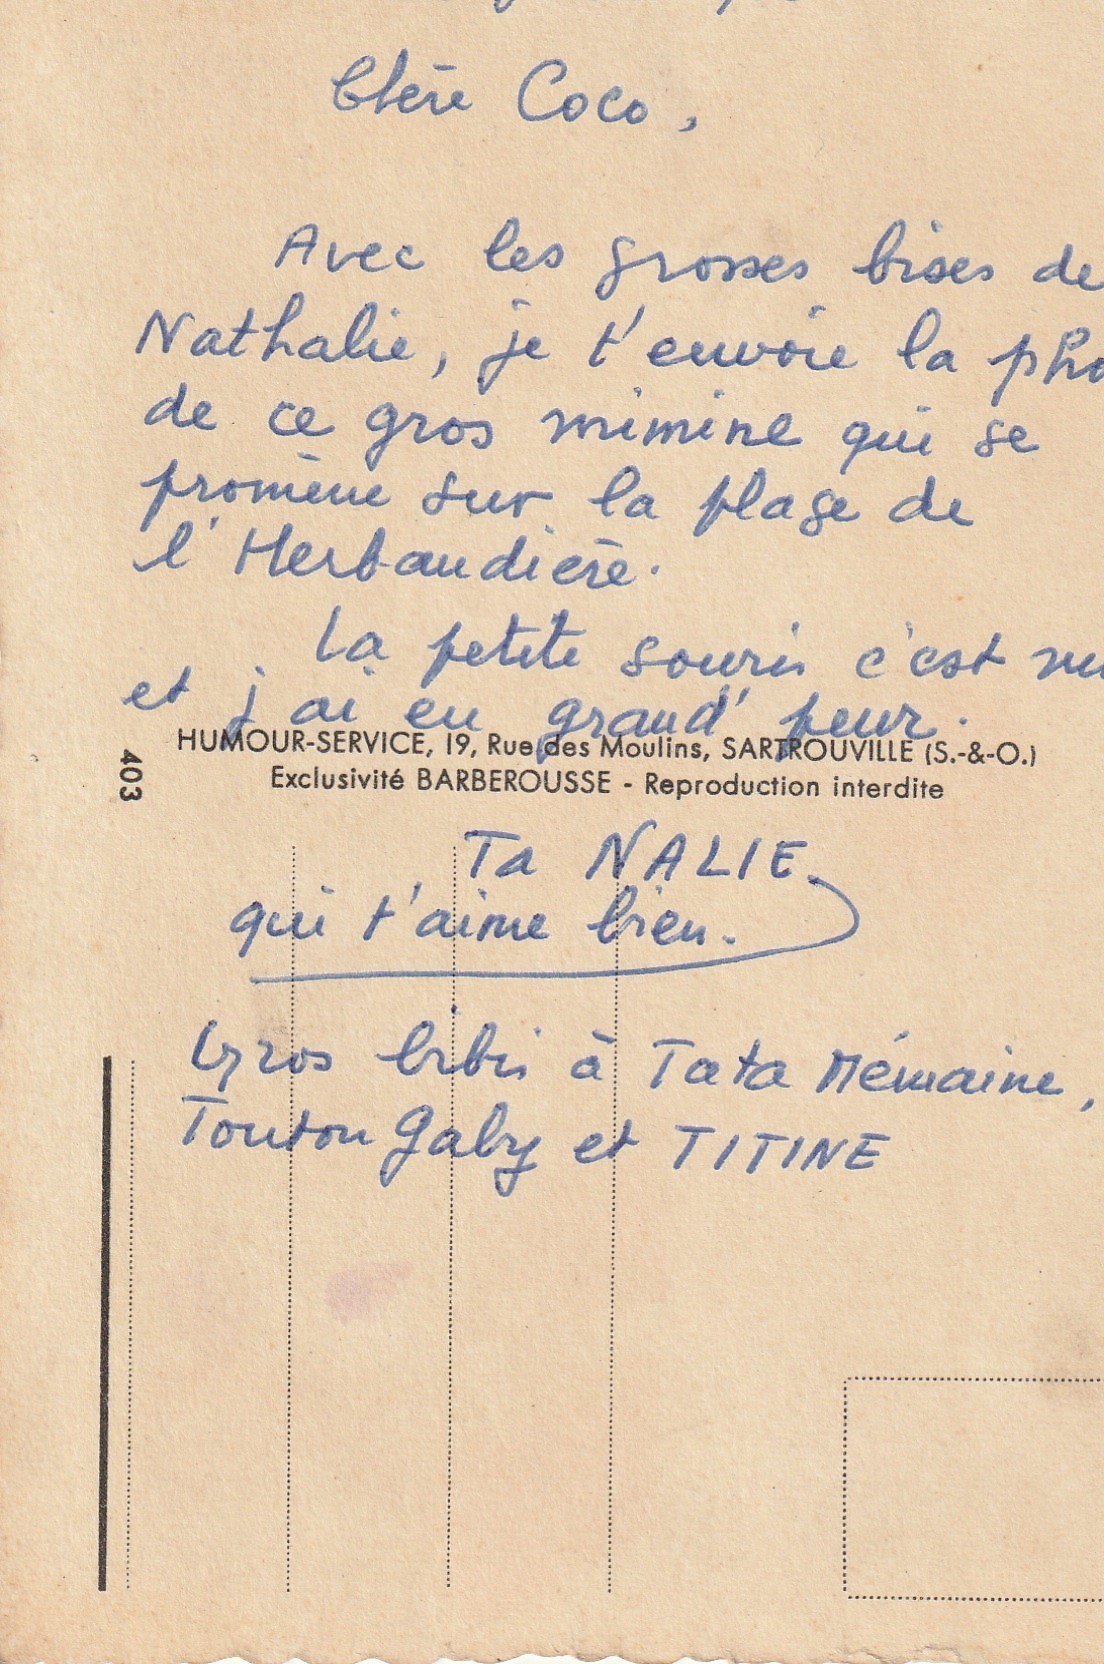 Chère Coco,
Avec les grosses bises de
Nathalie, je t'envoie la pho
de ce gros mimine qui se
promène sur la plage de
l'Herbaudière.
La petite souris c'est
et j'ai eu grand' peur.
HUMOUR-SERVICE, 19, Rue des Moulins, SARTROUVILLE (S.-&-O.)
Exclusivité BARBEROUSSE - Reproduction interdite
403
Ta NALIE
qui t'aime bien.
Gros bibis à Tata Mémaine,
Tonton Gaby et TITINE